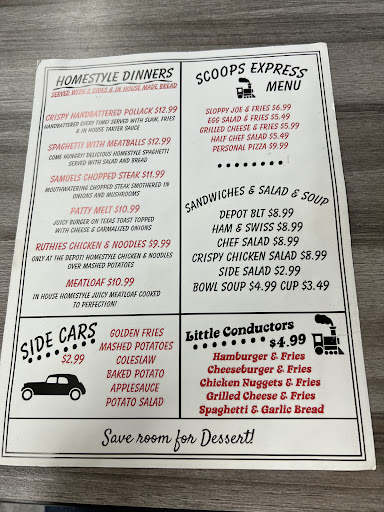 HOMESTYLE DINNERS
SERVED WITH 2 SIDES & IN HOUSE MADE BREAD
CRISPY HANDBATTERED POLLACK $12.99
HANDBATTERED EVERY TIME! SERVED WITH SLAW, FRIES
& IN HOUSE TARTER SAUCE
SPAGHETTI WITH MEATBALLS $12.99
COME HUNGRY! DELICIOUS HOMESTYLE SPAGHETTI
SERVED WITH SALAD AND BREAD
SAMUELS CHOPPED STEAK $11.99
MOUTHWATERING CHOPPED STEAK SMOTHERED IN
ONIONS AND MUSHROOMS
PATTY MELT $10.99
JUICY BURGER ON TEXAS TOAST TOPPED
WITH CHEESE & CARMALIZED ONIONS
RUTHIES CHICKEN & NOODLES $9.99
ONLY AT THE DEPOT! HOMESTYLE CHICKEN & NOODLES
OVER MASHED POTATOES
MEATLOAF $10.99
IN HOUSE HOMESTYLE JUICY MEATLOAF COOKED
TO PERFECTION!
SCOOPS EXPRESS
MENU
SLOPPY JOE & FRIES $6.99
EGG SALAD & FRIES $5.49
GRILLED CHEESE & FRIES $5.99
HALF CHEF SALAD $5.49
PERSONAL PIZZA $9.99
SANDWICHES & SALAD & SOUP
DEPOT BLT $8.99
HAM & SWISS $8.99
CHEF SALAD $8.99
CRISPY CHICKEN SALAD $8.99
SIDE SALAD $2.99
BOWL SOUP $4.99 CUP $3.49
SIDE CARS
$2.99
GOLDEN FRIES
MASHED POTATOES
COLESLAW
BAKED POTATO
APPLESAUCE
POTATO SALAD
Little Conductors
$4.99
Hamburger & Fries
Cheeseburger & Fries
Chicken Nuggets & Fries
Grilled Cheese & Fries
Spaghetti & Garlic Bread
Save room for Dessert!